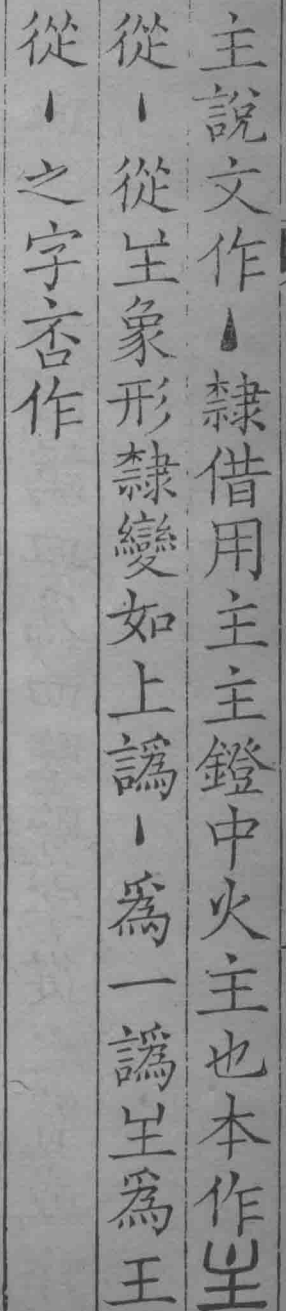 主說文作丶隸借用主主鐙中火主也本作𡉚
從丶從𡉚象形隸變如上譌丶爲一譌𡉚爲王
從丶之字㕻作